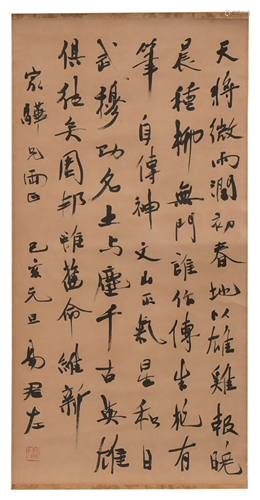 天將微雨潤初春地以雄雞報曉
晨種柳無門誰作傳生花有
筆自傳神文山正氣星和日
武穆功名土与塵千古英雄
俱往矣周邦雖舊命維新
家驊兄両正 己亥元旦 易君左